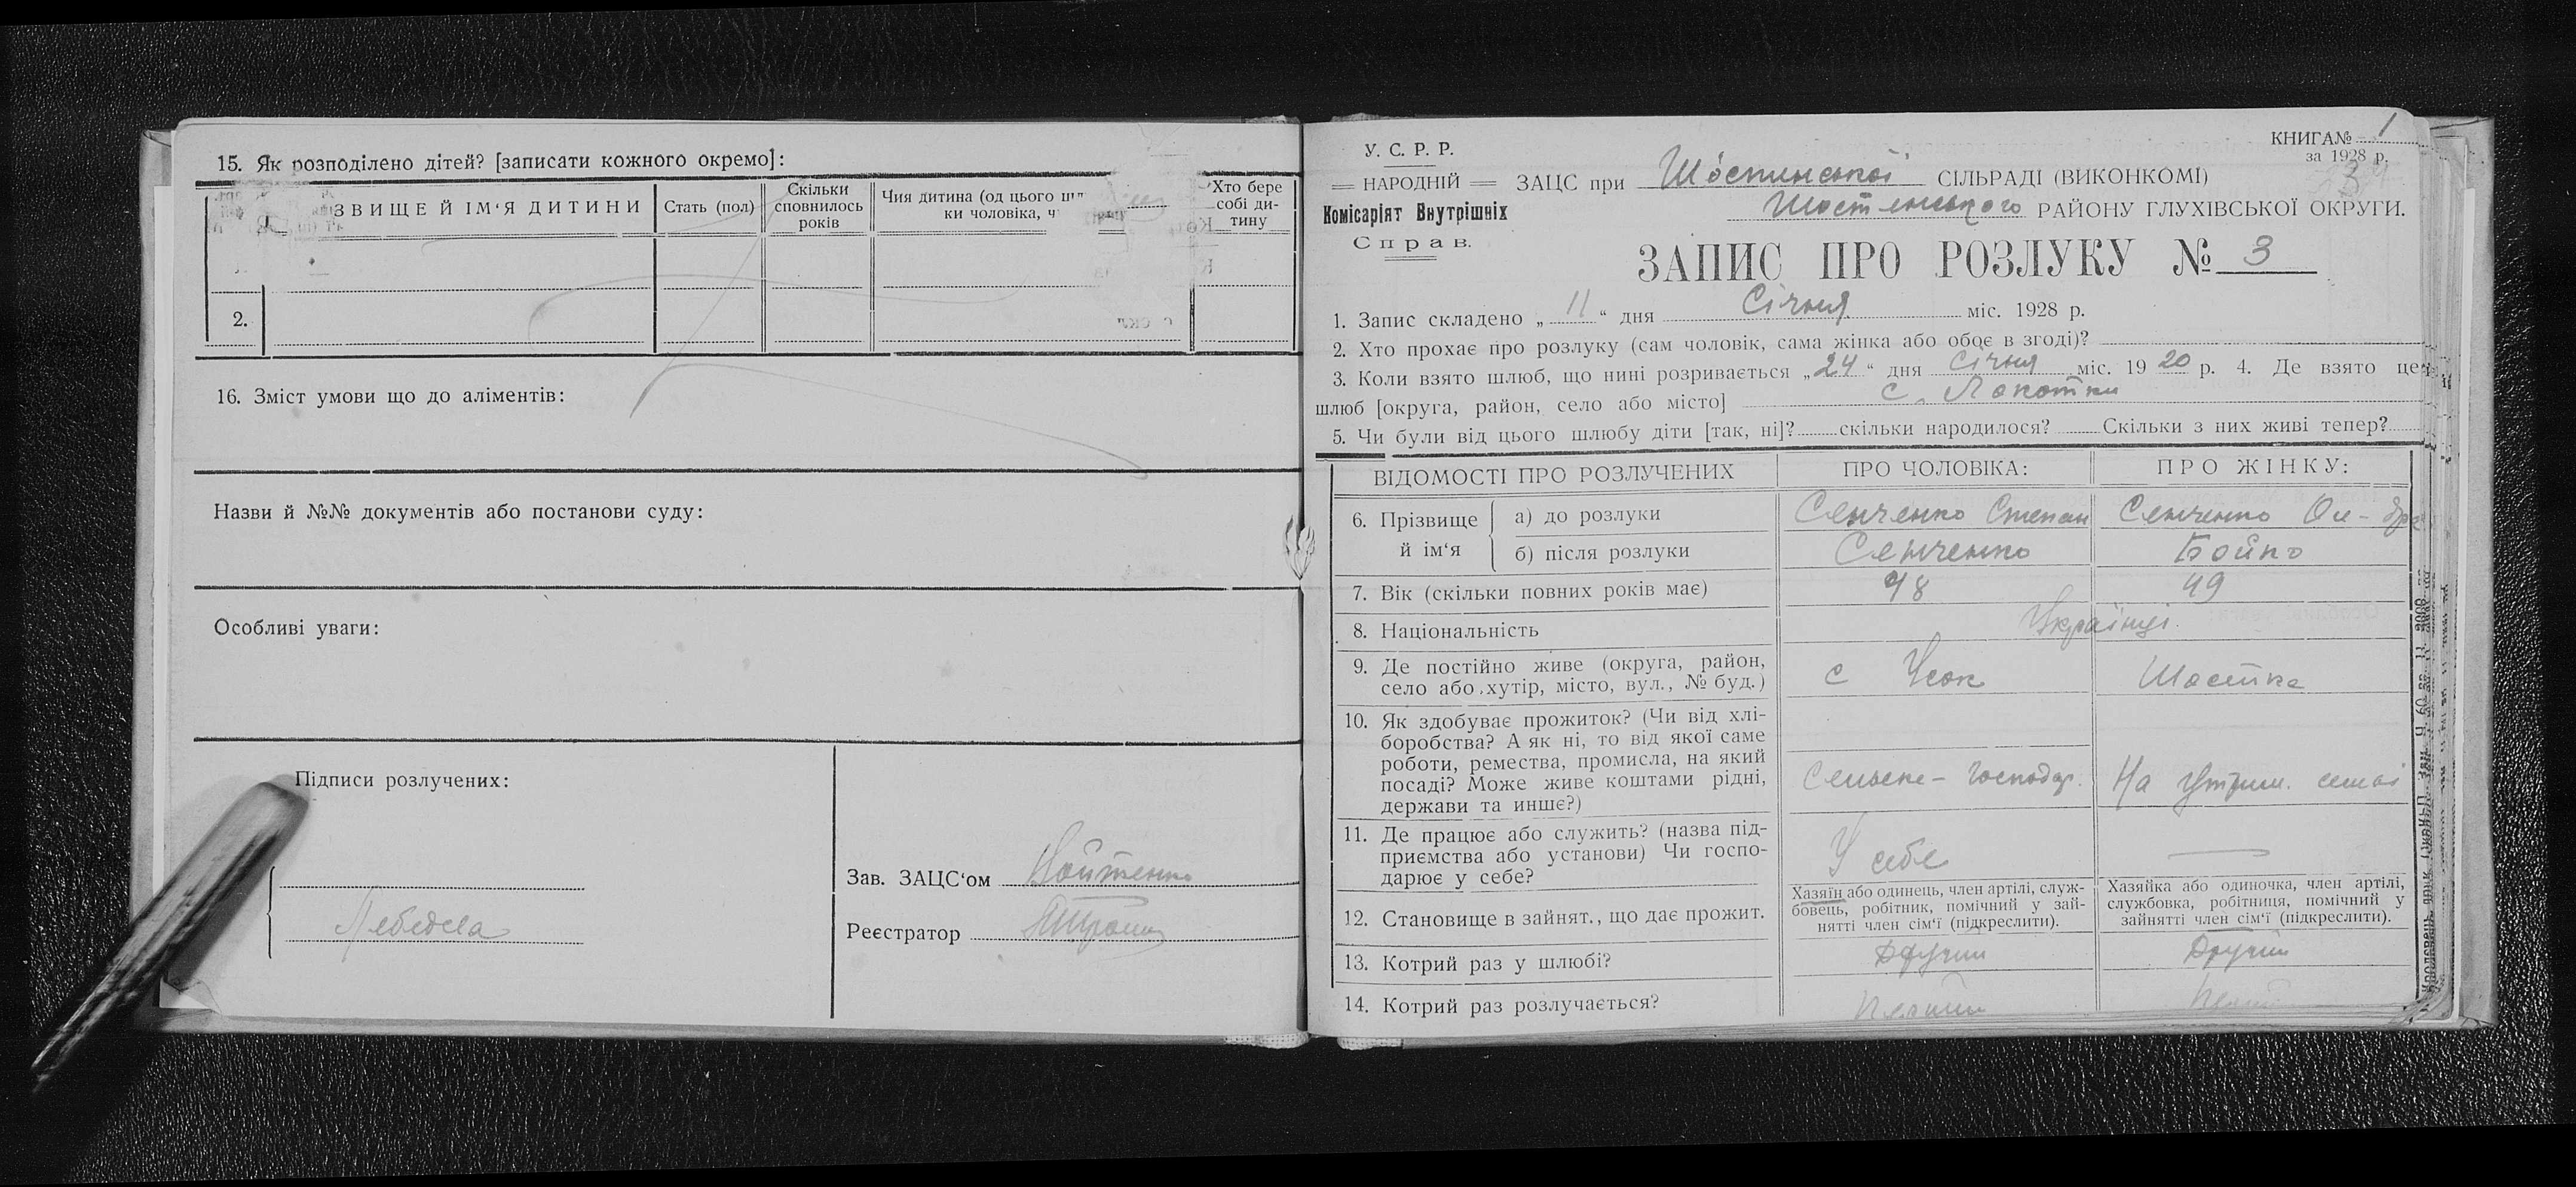 15. Як розподілено дітей? [записати кожного окремо]:
ЗВИЩЕ Й ІМ‘Я ДИТИНИ
Стать (пол)
Скільки
сповнилось
років
Чия дитина (од цього
ки чоловіка,
Хто бере
собі ди-
тину
2.
16. Зміст умови що до аліментів:
Назви й №№ документів або постанови суду:
Особливі уваги:
Підписи розлучених:
Лебедєва
Зав. ЗАЦС‘ом Войтенко
Реєстратор
КНИГА№ 1
за 1928 р.
У. С. Р. Р.
НАРОДНІЙ
Комісаріят Внутрішніх
Справ.
ЗАЦС при Шостинської СІЛЬРАДІ (ВИКОНКОМІ)
Шостенського РАЙОНУ ГЛУХІВСЬКОЇ ОКРУГИ.
ЗАПИС ПРО РОЗЛУКУ № 3
1. Запис складено „ 11 “ дня Січня міс. 1928 р.
2. Хто прохає про розлуку (сам чоловік, сама жінка або обоє в згоді)?
3. Коли взято шлюб, що нині розривається „ 24 “ дня Січня міс. 19 20 р. 4. Де взято цей
шлюб [округа, район, село або місто] с. Локотки
5. Чи були від цього шлюбу діти [так, ні]? скільки народилося? Скільки з них живі тепер?
ВІДОМОСТІ ПРО РОЗЛУЧЕНИХ ПРО ЧОЛОВІКА: ПРО ЖІНКУ:
6. Прізвище й ім‘я
а) до розлуки Сенченко Степан Сенченко
б) після розлуки Сенченко Бойко
7. Вік (скільки повних років має) 48 49
8. Національність Українці.
9. Де постійно живе (округа, район,
село або хутір, місто, вул., № буд.)
с Усок Шостка
10. Як здобуває прожиток? (Чи від хлі-
боробства? А як ні, то від якої саме
роботи, ремества, промисла, на який
посаді? Може живе коштами рідні,
держави та инше?)
Сельске-господар. На утрим. семьї
11. Де працює або служить? (назва під-
приємства або установи) Чи госпо-
дарює у себе?
У себе —
12. Становище в зайнят., що дає прожит.
Хазяїн або одинець, член артілі, служ-
бовець, робітник, помічний у зай-
нятті член сім‘ї (підкреслити).
Хазяйка або одиночка, член артілі,
службовка, робітниця, помічний у
зайнятті член сім‘ї (підкреслити).
13. Котрий раз у шлюбі? Другий Другий
14. Котрий раз розлучається? Перший Перший